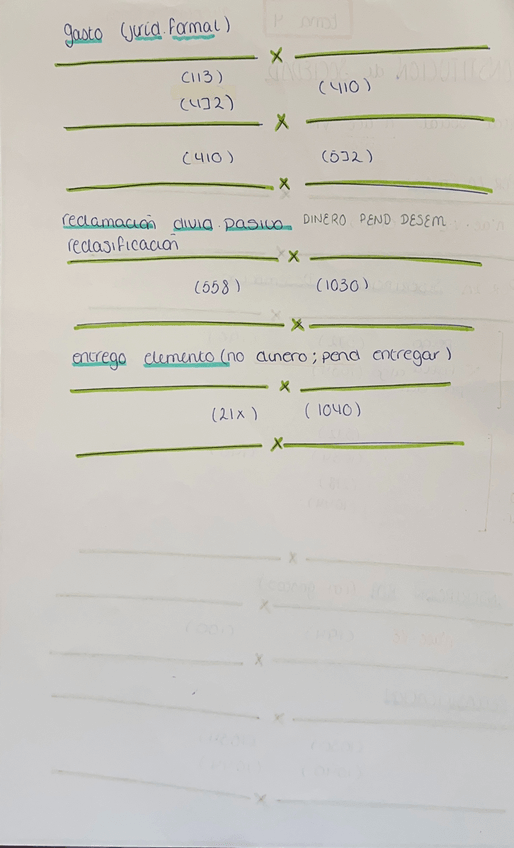 gasto (jurid. formal)
x
(113) (410)
(472)
x
(410) (572)
x
reclamación divid. pasivo DINERO PEND. DESEM
reclasificación
x
(558) (1030)
x
entrego elemento (no dinero; pend entregar)
x
(21x) (1040)
x